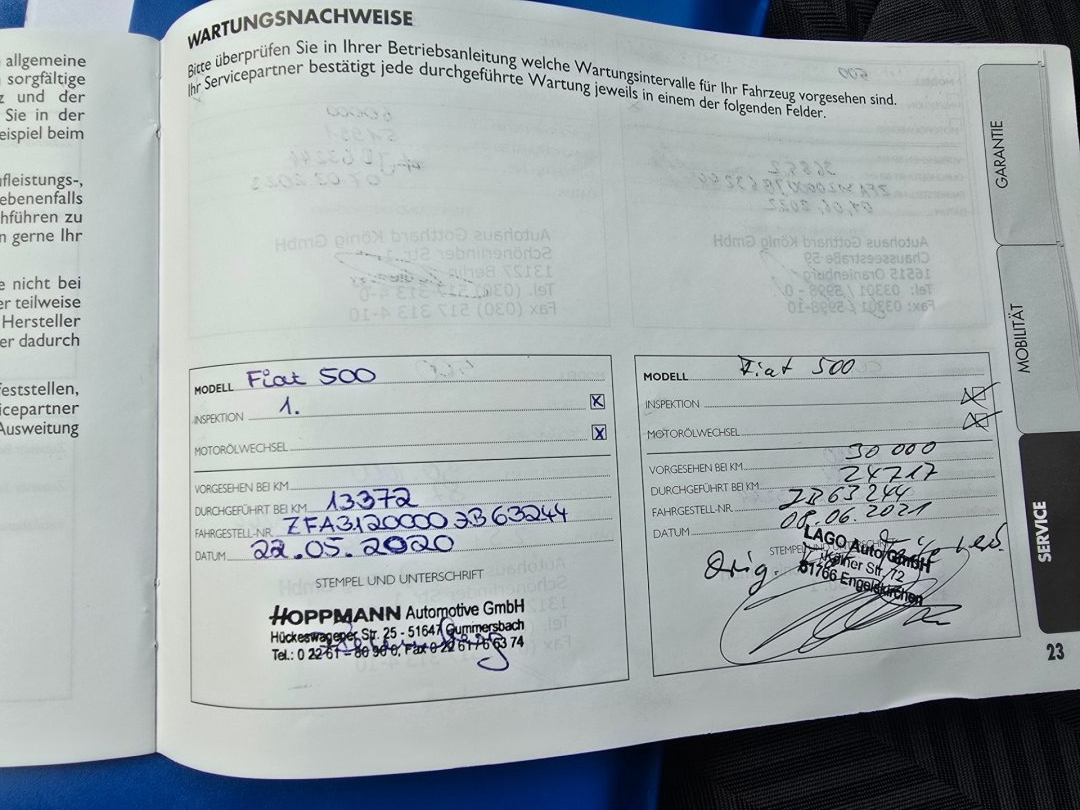 allgemeine
sorgfältige
z und der
Sie in der
eispiel beim
fleistungs-,
ebenenfalls
hführen zu
n gerne Ihr
e nicht bei
er teilweise
Hersteller
er dadurch
feststellen,
icepartner
Ausweitung
WARTUNGSNACHWEISE
Bitte überprüfen Sie in Ihrer Betriebsanleitung welche Wartungsintervalle für Ihr Fahrzeug vorgesehen sind.
Ihr Servicepartner bestätigt jede durchgeführte Wartung jeweils in einem der folgenden Felder.
MODELL Fiat 500
INSPEKTION 1. X
MOTORÖLWECHSEL X
VORGESEHEN BEI KM
DURCHGEFÜHRT BEI KM 13372
FAHRGESTELL-NR. ZFA3120000JB63244
DATUM 22.05.2020
STEMPEL UND UNTERSCHRIFT
HOPPMANN Automotive GmbH
Hückeswagener Str. 25 - 51647 Gummersbach
Tel.: 0 22 61 - 80 90 0, Fax 0 22 61 / 6 63 74
MODELL Fiat 500
INSPEKTION X
MOTORÖLWECHSEL X
VORGESEHEN BEI KM 30 000
DURCHGEFÜHRT BEI KM 24717
FAHRGESTELL-NR. JB63244
DATUM 08.06.2021
STEMPEL UND
LAGO Auto GmbH
Str. 72
51766 Engelskirchen
Orig.
GARANTIE
MOBILITÄT
SERVICE
23